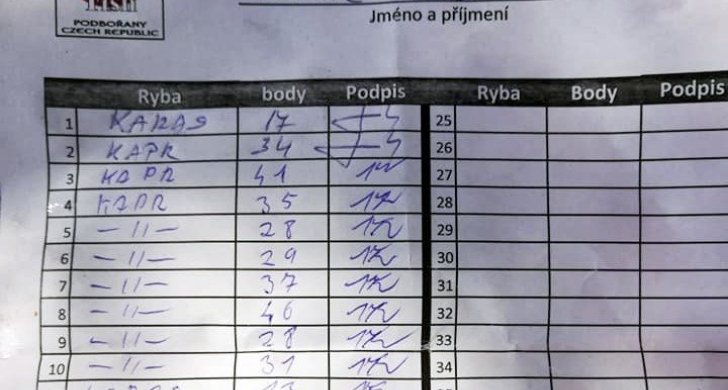 FISH
PODBOŘANY
CZECH REPUBLIC
Jméno a příjmení
Ryba body Podpis Ryba Body Podpis
1 KARAS 17 25
2 KAPR 34 26
3 KAPR 41 27
4 KAPR 35 28
5 —||— 28 29
6 —||— 29 30
7 —||— 37 31
8 —||— 46 32
9 —||— 28 33
10 —||— 31 34